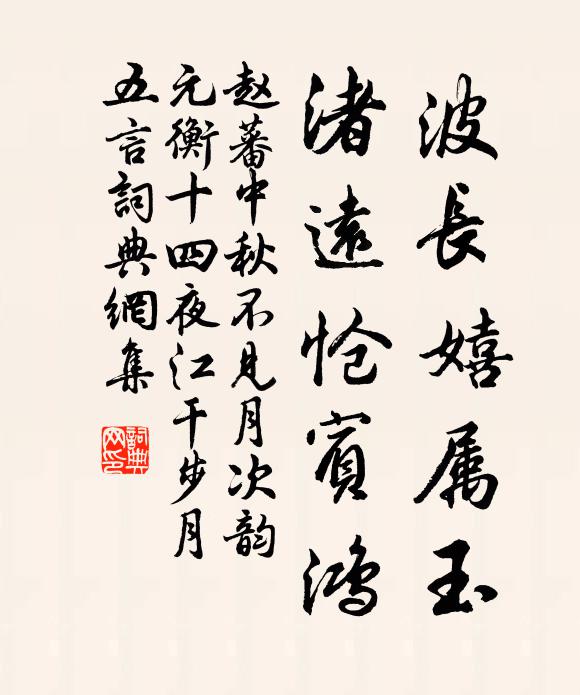 波長嬉属玉
渚遠怆賓鴻
赵蕃中秋不見月次韵
元衡十四夜江干步月
五言詞典網集
詞典网印